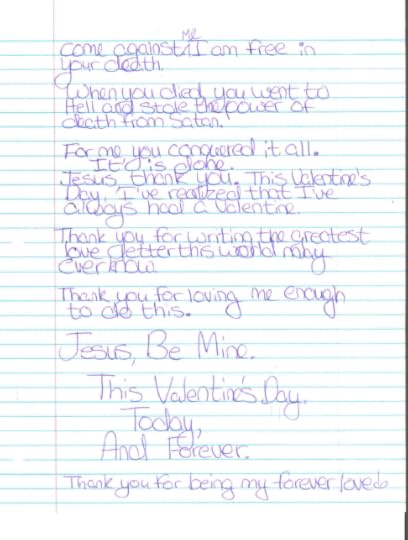 Me
come against I am free in
your death.
When you died, you went to
Hell and stole the power of
death from Satan.
For me you conquered it all.
It is done.
Jesus, thank you. This Valentine's
Day, I've realized that I've
always had a Valentine.
Thank you for writing the greatest
love letter this world may
ever know.
Thank you for loving me enough
to do this.
Jesus, Be Mine.
This Valentine's Day.
Today,
And Forever.
Thank you for being my forever love